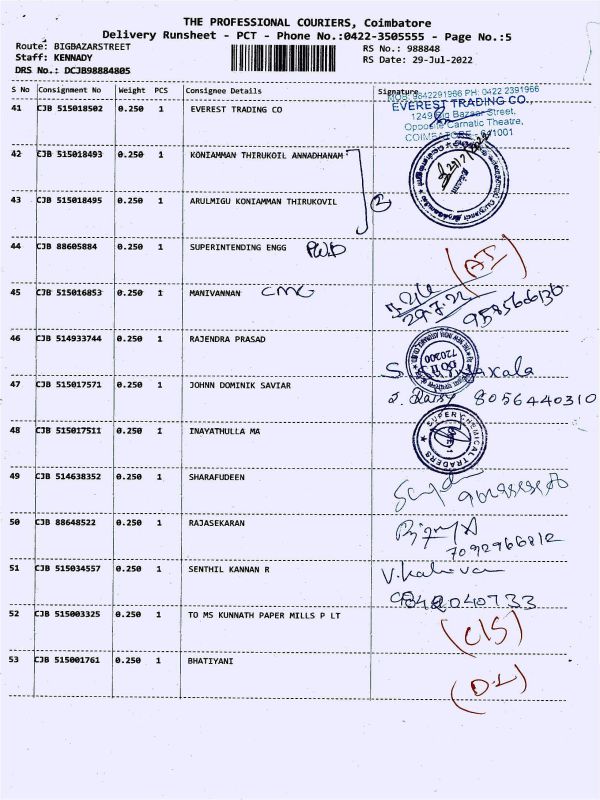 THE PROFESSIONAL COURIERS, Coimbatore
Delivery Runsheet - PCT - Phone No.:0422-3505555 - Page No.:5
Route: BIGBAZARSTREET
RS No.: 988848
Staff: KENNADY
RS Date: 29-Jul-2022
DRS No.: DCJB98884805
S No Consignment No Weight PCS Consignee Details Signature
MOB: 9842291966 PH: 0422 2391966
41 CJB 515018502 0.250 1 EVEREST TRADING CO
EVEREST TRADING CO.,
1249 Big Bazaar Street,
Opposite Carnatic Theatre,
COIMBATORE - 641001
42 CJB 515018493 0.250 1 KONIAMMAN THIRUKOIL ANNADHANAM
43 CJB 515018495 0.250 1 ARULMIGU KONIAMMAN THIRUKOVIL 2
44 CJB 88605884 0.250 1 SUPERINTENDING ENGG PWD
45 CJB 515016853 0.250 1 MANIVANNAN CMC
29.7.22
46 CJB 514933744 0.250 1 RAJENDRA PRASAD
47 CJB 515017571 0.250 1 JOHNN DOMINIK SAVIAR
8056440310
48 CJB 515017511 0.250 1 INAYATHULLA MA
SUPER CHEMICAL TRADERS
49 CJB 514638352 0.250 1 SHARAFUDEEN
50 CJB 88648522 0.250 1 RAJASEKARAN
7092966812
51 CJB 515034557 0.250 1 SENTHIL KANNAN R
52 CJB 515003325 0.250 1 TO MS KUNNATH PAPER MILLS P LT
(C/S)
53 CJB 515001761 0.250 1 BHATIYANI
(D.L)